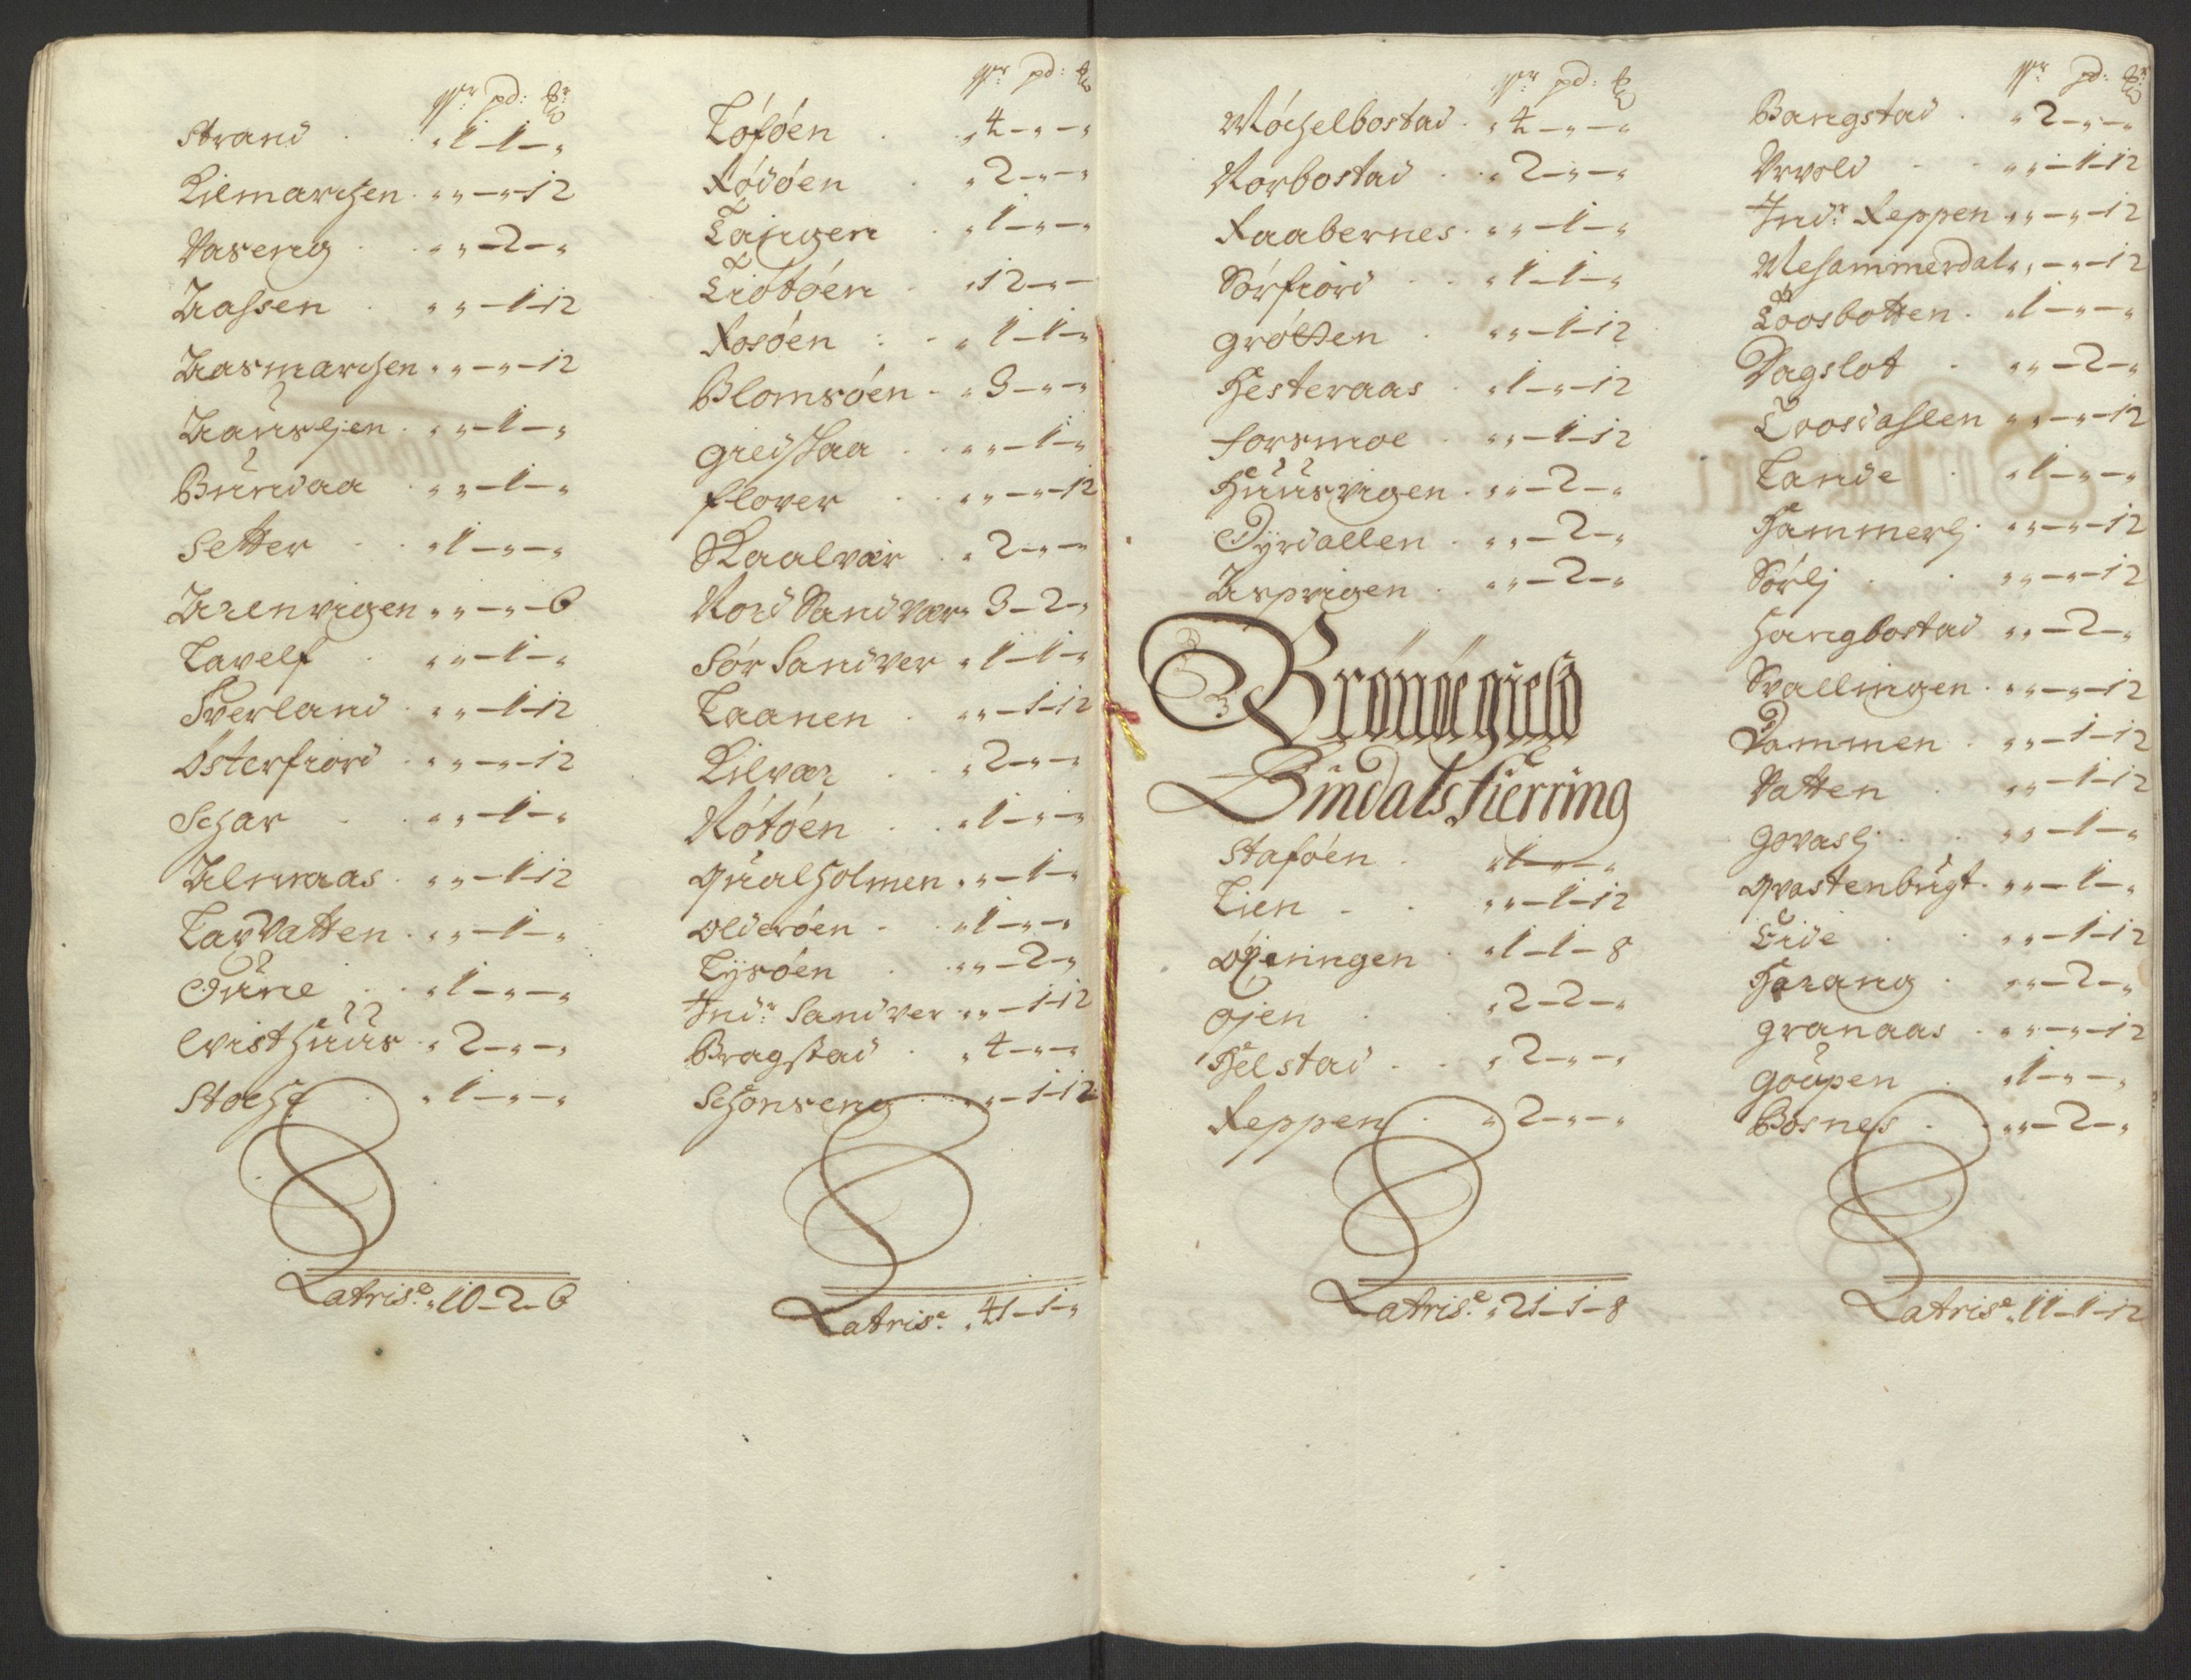 Wr pd: ℔r
Strand . . „1–1–„
Kilmarchen . „ „–„–12
Vaseng . . „ „–2–„
Aassen . „ „–1–12
Aasmarchen „ „–„–12
Aaüsljen . „ „–1–„
Bündaa . „ „–1–„
Setter . . „1–„–„
Arenvigen „ „–„–6
Tavelf . „ „–1–„
Sverland . „ „–1–12
Østerfiord . „ „–„–12
Schar . . „ „–1–„
Almraas . „ „–1–12
Tarvatten . „ „–1–„
Tüne . . „1–„–„
Qvisthüüs . „2–„–„
Stoche . „1–„–„
Latris.e „10–2–6
Wr pd: ℔
Løføen . „4–„–„
Rødøen . „2–„–„
Taingen . „1–„–„
Tiøtøen . „12–„–
Rosøen : . „1–1–„
Blomsøen . „3–„–„
Gieidsaa . . „ „–1–„
Flover . „ „–„–12
Skaalvær . „2–„–„
Nord Sandvær „3–2–„
Sør Sandver „1–1–„
Laanen . „ „–1–12
Kilvær . . „2–„–„
Røtøen . . „1–„–„
Qualholmen „ „–1–„
Olderøen . „1–„–„
Lysøen . „ „–2–„
Indr Sandver „ „–1–12
Bragstad . „4–„–„
Schonseng . . „ „–1–12
Latris.e „41–1–„
Wr pd: ℔
Møchelbostad . „4–„–„
Norbostad . . „2–„–„
Raabernes . „ „–1–„
Sørfiord . . „1–1–„
Grøtten . „ „–1–12
Hesteraas . „1–„–12
Forsmoe . „ „–1–12
Hüüsvigen . „ „–2–„
Dyrdallen . „ „–2–„
Aspvigen . „ „–2–„
Brønøe gield
Bindals Fierring
Staføen . „1–„–„
Lien . . „ „–1–12
Øjeningen . „1–1–8
Øjen . . „2–2–„
Helstad . . „2–„–„
Reppen . „2–„–„
Latris.e „21–1–8
Wr pd: ℔r
Bangstad . „2–„–„
Urvold . . „ „–1–12
Indr Reppen „ „–„–12
Mesammerdal „ „–„–12
Toosbotten . „1–„–„
Dagslot . „ „–2–„
Toosdahlen „ „–„–12
Lande . „1–„–„
Hammerlj . „ „–„–12
Sørlj . . „ „–„–12
Hangbostad „ „–2–„
Svallingen . „ „–„–12
Dammen . „ „–1–12
Vatten . „ „–1–12
Govaslj . . „ „–1–„
Qvastenbügt . „ „–1–„
Eide . . „ „–1–12
Harang . „ „–2–„
Granaas . „ „–„–12
Goüpen . „1–„–„
Bosnes . . „ „–2–„
Latris.e „11–1–12